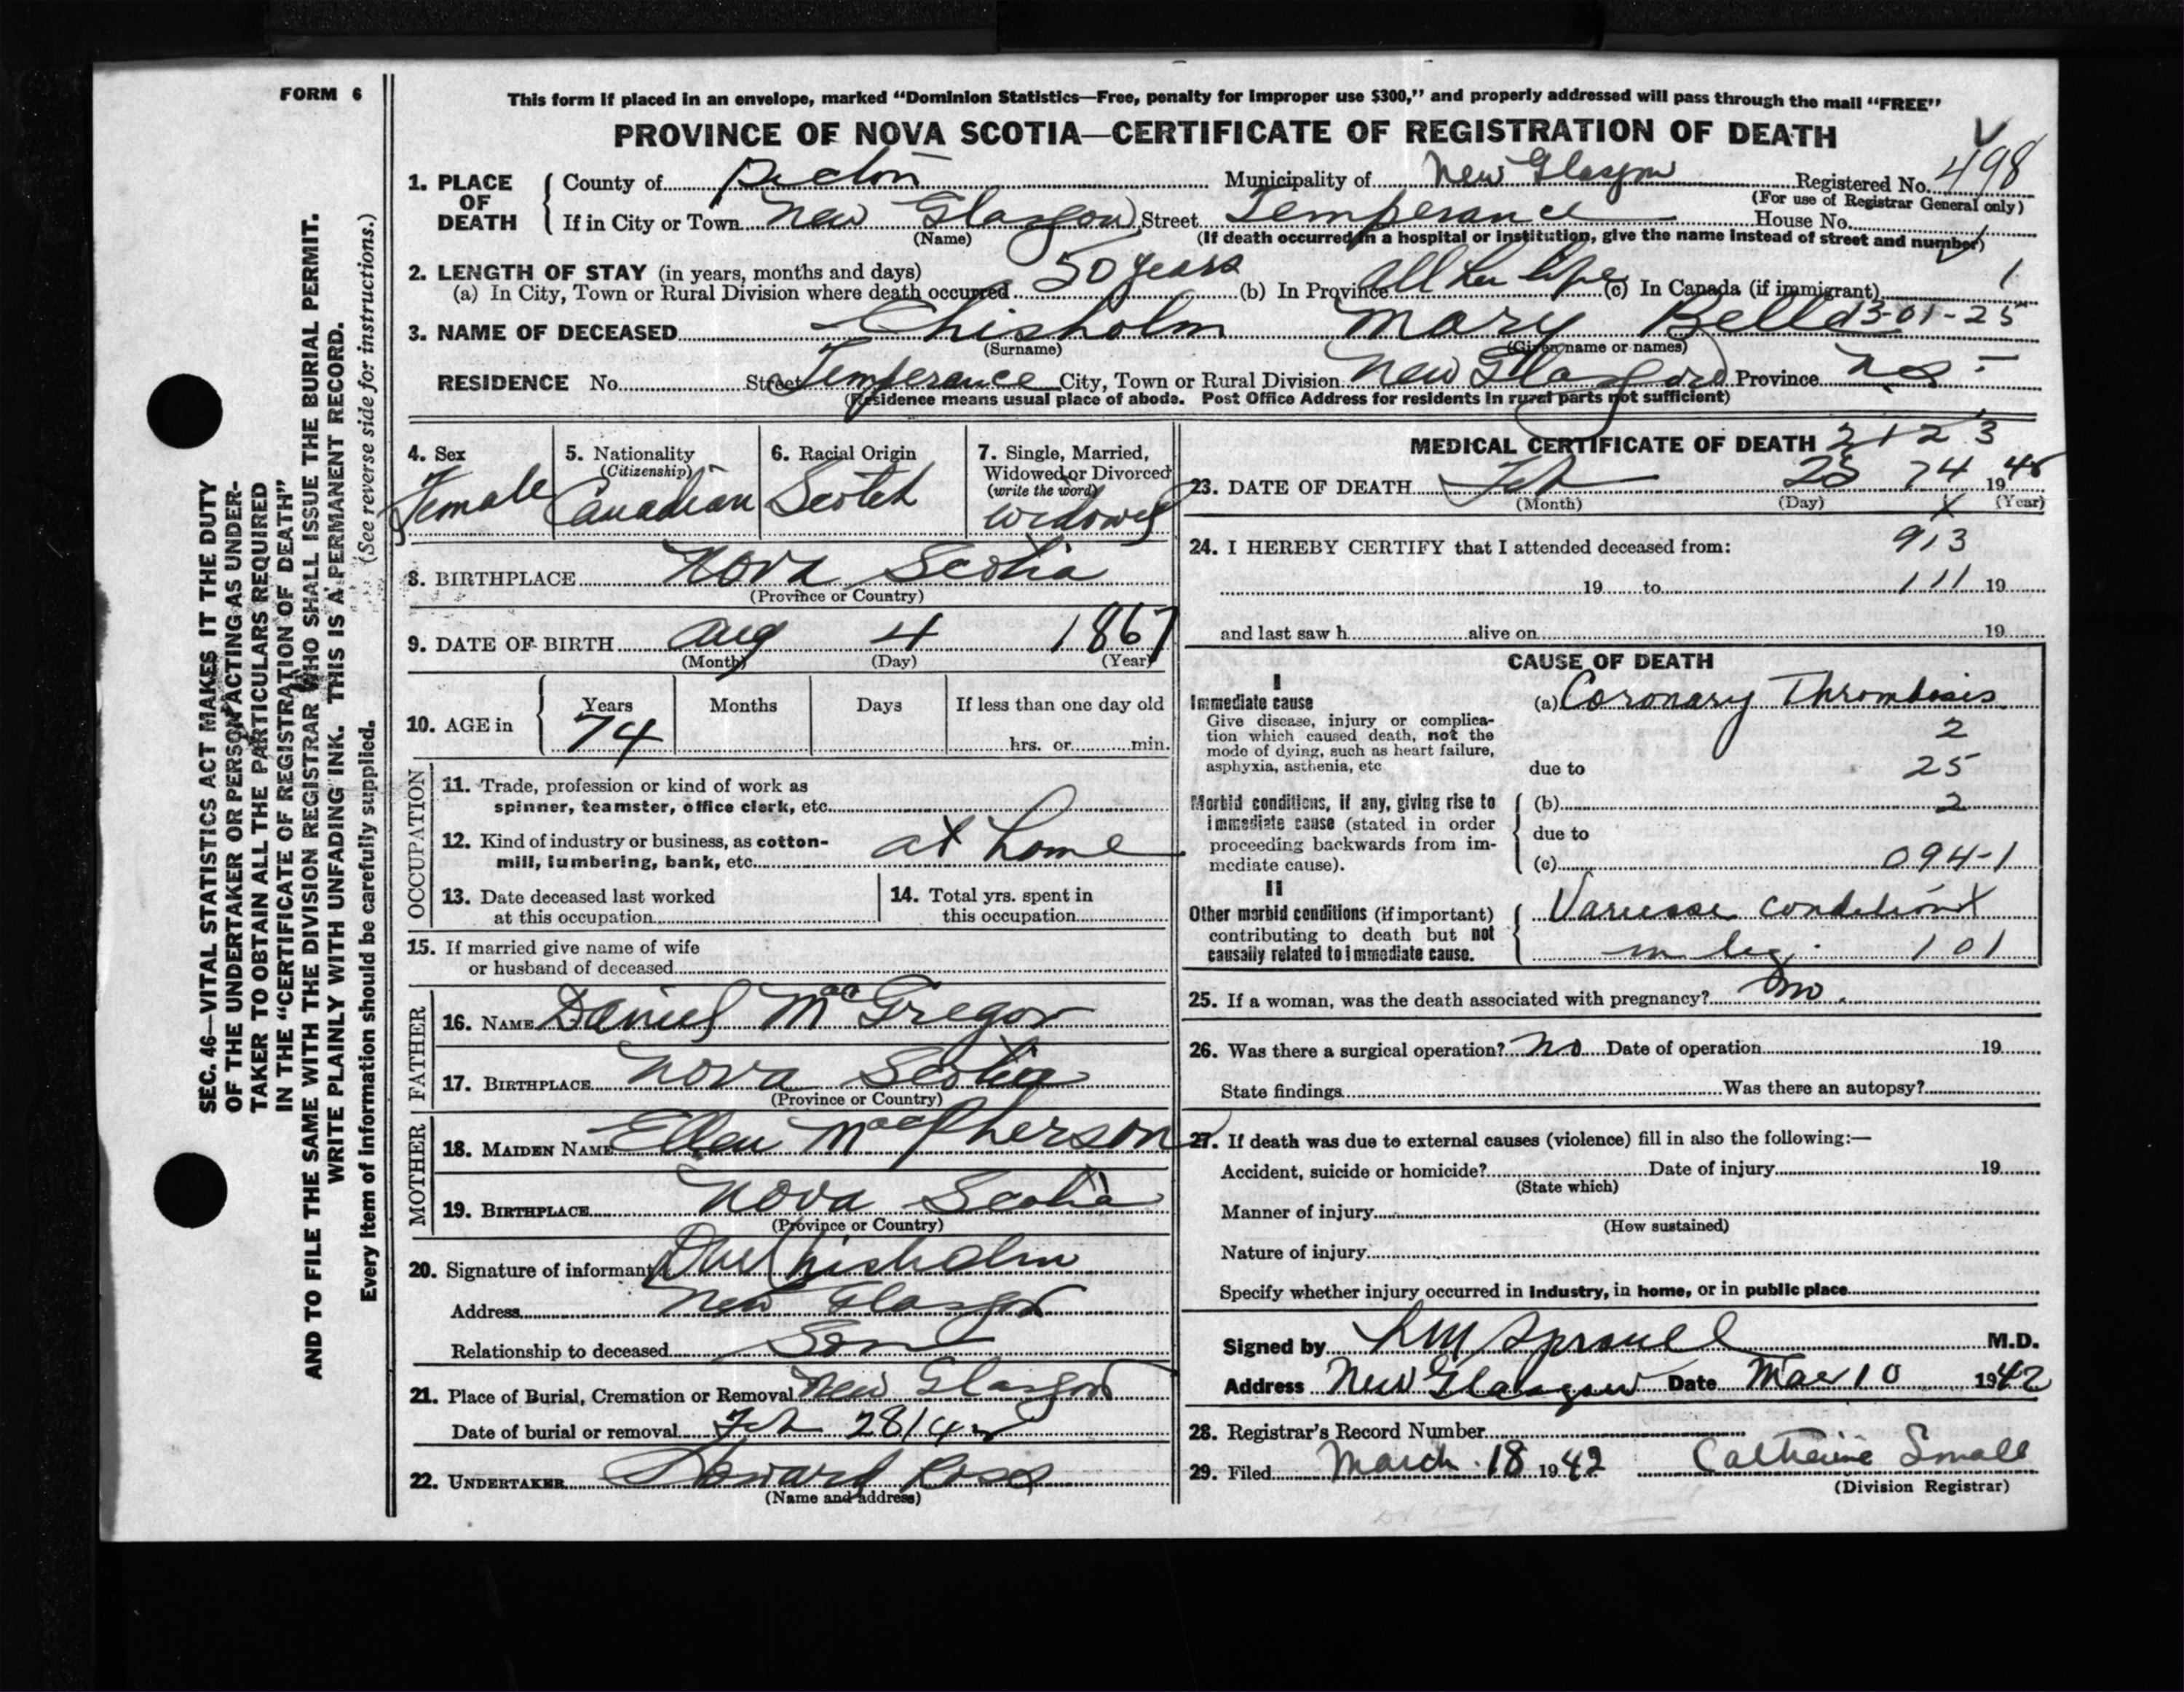 FORM 6
This form if placed in an envelope, marked "Dominion Statistics—Free, penalty for improper use $300," and properly addressed will pass through the mail "FREE"
PROVINCE OF NOVA SCOTIA—CERTIFICATE OF REGISTRATION OF DEATH
1. PLACE OF DEATH { County of Pictou Municipality of New Glasgow Registered No. 498
(For use of Registrar General only)
If in City or Town New Glasgow Street Temperance House No.
(Name) (If death occurred in a hospital or institution, give the name instead of street and number)
2. LENGTH OF STAY (in years, months and days)
(a) In City, Town or Rural Division where death occurred 50 years (b) In Province All her life (c) In Canada (if immigrant) 1
3. NAME OF DECEASED Chisholm Mary Bella 13-01-25
(Surname) (Given name or names)
RESIDENCE No. Street Temperance City, Town or Rural Division New Glasgow Province N.S.
(Residence means usual place of abode. Post Office Address for residents in rural parts not sufficient)
4. Sex Female
5. Nationality (Citizenship) Canadian
6. Racial Origin Scotch
7. Single, Married, Widowed or Divorced (write the word) Widowed
8. BIRTHPLACE Nova Scotia
(Province or Country)
9. DATE OF BIRTH Aug 4 1867
(Month) (Day) (Year)
10. AGE in { Years 74 Months Days If less than one day old
hrs. or min.
OCCUPATION
11. Trade, profession or kind of work as
spinner, teamster, office clerk, etc.
12. Kind of industry or business, as cotton-
mill, lumbering, bank, etc. at home
13. Date deceased last worked
at this occupation
14. Total yrs. spent in
this occupation
15. If married give name of wife
or husband of deceased
FATHER
16. NAME Daniel MacGregor
17. BIRTHPLACE Nova Scotia
(Province or Country)
MOTHER
18. MAIDEN NAME Ellen MacPherson
19. BIRTHPLACE Nova Scotia
(Province or Country)
20. Signature of informant Chisholm
Address New Glasgow
Relationship to deceased Son
21. Place of Burial, Cremation or Removal New Glasgow
Date of burial or removal Feb 28/42
22. UNDERTAKER Howard Ross
(Name and address)
MEDICAL CERTIFICATE OF DEATH 2123
23. DATE OF DEATH Feb 25 74 19 42
(Month) (Day) (Year)
X
24. I HEREBY CERTIFY that I attended deceased from: 913
19 to 111 19
and last saw h alive on 19
CAUSE OF DEATH
I
Immediate cause (a) Coronary Thrombosis
Give disease, injury or complica-
tion which caused death, not the 2
mode of dying, such as heart failure,
asphyxia, asthenia, etc due to 25
Morbid conditions, if any, giving rise to (b) 2
immediate cause (stated in order due to
proceeding backwards from im-
mediate cause). (c) 094-1
II
Other morbid conditions (if important) Varicose condition X
contributing to death but not
causally related to immediate cause. in leg. 101
25. If a woman, was the death associated with pregnancy? no.
26. Was there a surgical operation? no Date of operation 19
State findings Was there an autopsy?
27. If death was due to external causes (violence) fill in also the following:—
Accident, suicide or homicide? Date of injury 19
(State which)
Manner of injury
(How sustained)
Nature of injury
Specify whether injury occurred in industry, in home, or in public place
Signed by M.D.
Address New Glasgow Date Mar 10 1942
28. Registrar's Record Number
29. Filed March 18 1942 Catherine Small
(Division Registrar)
SEC. 46—VITAL STATISTICS ACT MAKES IT THE DUTY
OF THE UNDERTAKER OR PERSON ACTING AS UNDER-
TAKER TO OBTAIN ALL THE PARTICULARS REQUIRED
IN THE "CERTIFICATE OF REGISTRATION OF DEATH"
AND TO FILE THE SAME WITH THE DIVISION REGISTRAR WHO SHALL ISSUE THE BURIAL PERMIT.
WRITE PLAINLY WITH UNFADING INK. THIS IS A PERMANENT RECORD.
Every item of information should be carefully supplied. (See reverse side for instructions.)